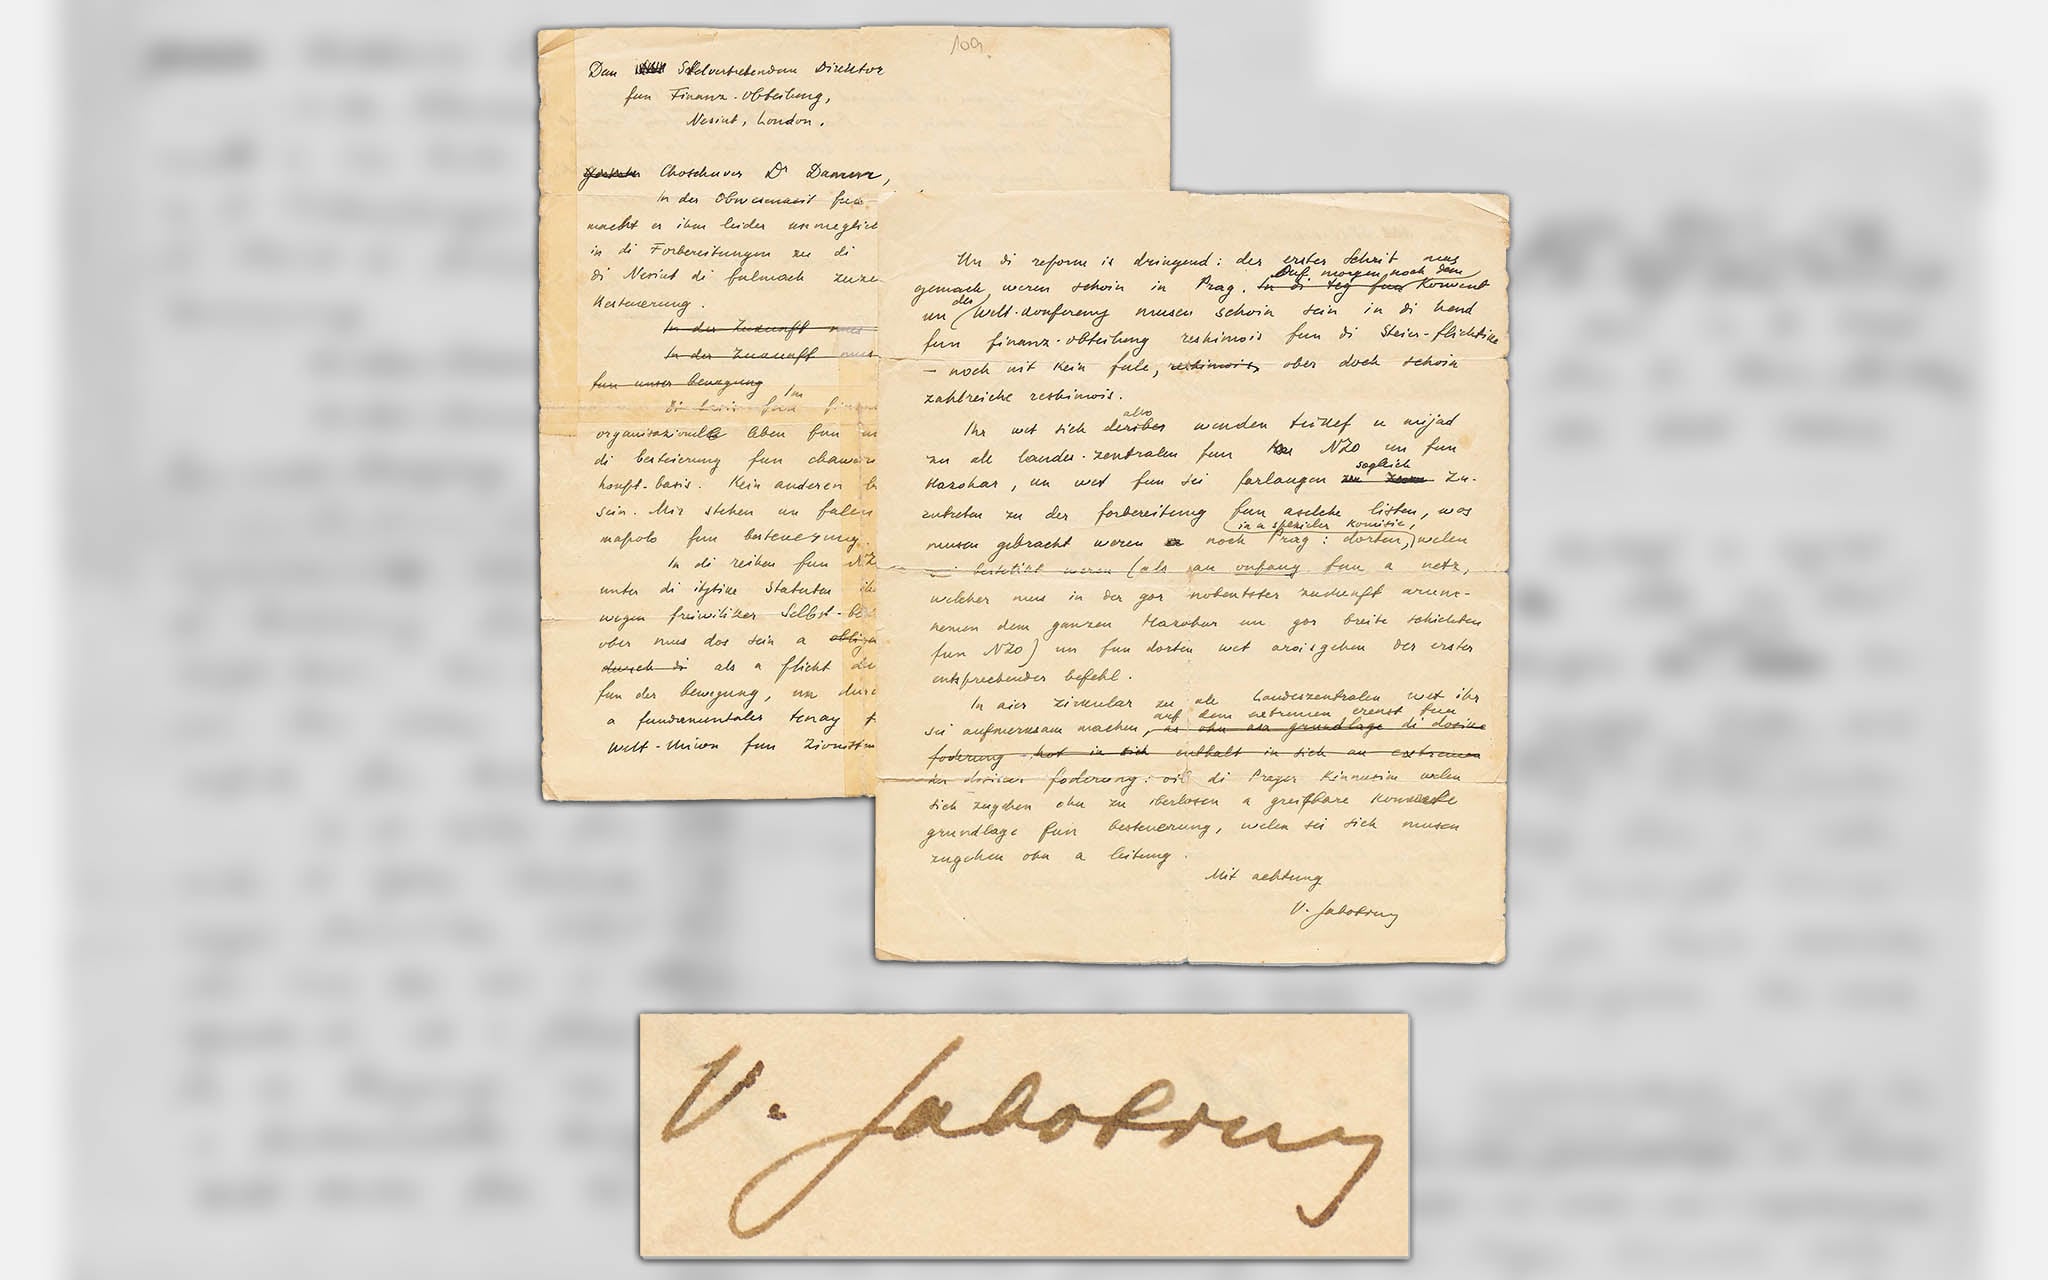 109
Dem Stelvertretendem Direktor
fun Finanz-Obteilung,
Nesiut, London.
Choschuwer Dr Damm,
In der Obwesenheit fun
macht es ihm leider unmeglich
in di Forbereitungen zu di
di Nesiut di fulmach zuzu
besteuerung.
In der Zukunft mus
In der Zukunft mus
fun unser bewegung
Im
di basis fun finanz
organisazionele leben fun un
di besteierung fun chaweri
houpt-basis. Kein anderen b
sein. Mir stehen un falen
mapolo fun besteuerung.
In di reihen fun NZ
unter di itztike Statuten
wegen freiwiliker Selbst-be
ober mus dos sein a obliga
durch di als a flicht
fun der bewegung, un durch
a fundamentaler tenay f
Welt-Union fun Zionistn
Un di reform is dringend: der erster Schrit mus
Auf morgen noch dem
gemach weren schoin in Prag. In di teg fun Konwent
un der Welt-Konferenz musen schoin sein in di hend
fun finanz-obteilung reshimois fun di Steier-flichtike
— noch nit kein fule, reshimois, ober doch schoin
zahlreiche reshimois.
also
Ihr wet sich deriber wenden teikef u mijad
zu ale lander-zentralen fun der NZO un fun
sogleich
Hazohar, un wet fun sei farlangen zu Zu-
zutreten zu der forbereitung fun aselche listen, was
in a spezieler komisie,
musen gebracht weren noch Prag: dorten, welen
sei bestetikt weren (als an onfang fun a netz,
welcher mus in der gor nohentster zukunft arum-
nemen dem ganzen Hazohar un gor breite schichten
fun NZO) un fun dorten wet aroisgehen der erster
entsprechender befehl.
In aier zirkular zu ale Landeszentralen wet ihr
auf dem extremen ernst fun
sei aufmerksam machen, as ohn asa grundlage di dosike
foderung hot in sich enthalt in sich an extremen
der dosiker foderung: oib di Prager Kinnusim welen
sich zugehen ohn zu iberlosen a greifbare konkrete
grundlage fun besteuerung, welen sei sich musen
zugehen ohn a leitung.
Mit achtung
V. Jabotinsky
V. Jabotinsky